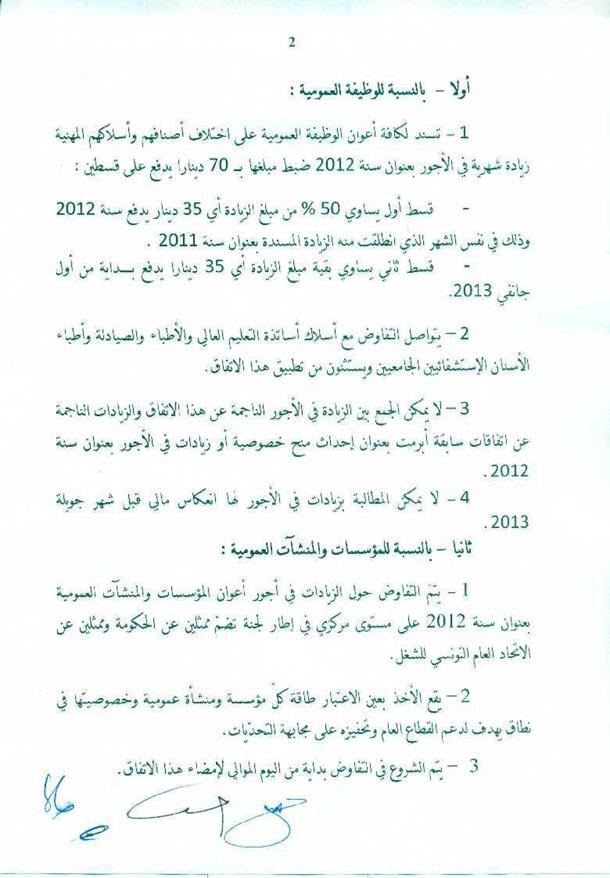 2
أولا – بالنسبة للوظيفة العمومية :
1 – تسند لكافة أعوان الوظيفة العمومية على اختلاف أصنافهم وأسلاكهم المهنية
زيادة شهرية في الأجور بعنوان سنة 2012 ضبط مبلغها بـ 70 دينارا يدفع على قسطين :
- قسط أول يساوي 50 % من مبلغ الزيادة أي 35 دينار يدفع سنة 2012
وذلك في نفس الشهر الذي انطلقت منه الزيادة المسندة بعنوان سنة 2011 .
- قسط ثاني يساوي بقية مبلغ الزيادة أي 35 دينارا يدفع بـــداية من أول
جانفي 2013.
2 – يتواصل التفاوض مع أسلاك أساتذة التعليم العالي والأطباء والصيادلة وأطباء
الأسنان الإستشفائيين الجامعيين ويستثنون من تطبيق هذا الاتفاق.
3 – لا يمكن الجمع بين الزيادة في الأجور الناجمة عن هذا الاتفاق والزيادات الناجمة
عن اتفاقات سابقة أبرمت بعنوان إحداث منح خصوصية أو زيادات في الأجور بعنوان سنة
2012 .
4 – لا يمكن المطالبة بزيادات في الأجور لها انعكاس مالي قبل شهر جويلة
2013 .
ثانيا – بالنسبة للمؤسسات والمنشآت العمومية :
1 – يتمّ التفاوض حول الزيادات في أجور أعوان المؤسسات والمنشآت العمومية
بعنوان سنة 2012 على مستوى مركزي في إطار لجنة تضمّ ممثلين عن الحكومة وممثلين عن
الاتحاد العام التونسي للشغل.
2 – يقع الأخذ بعين الاعتبار طاقة كلّ مؤسسة ومنشأة عمومية وخصوصيتها في
نطاق يهدف لدعم القطاع العام وتحفيزه على مجابهة التحدّيات.
3 – يتمّ الشروع في التفاوض بداية من اليوم الموالي لإمضاء هذا الاتفاق.